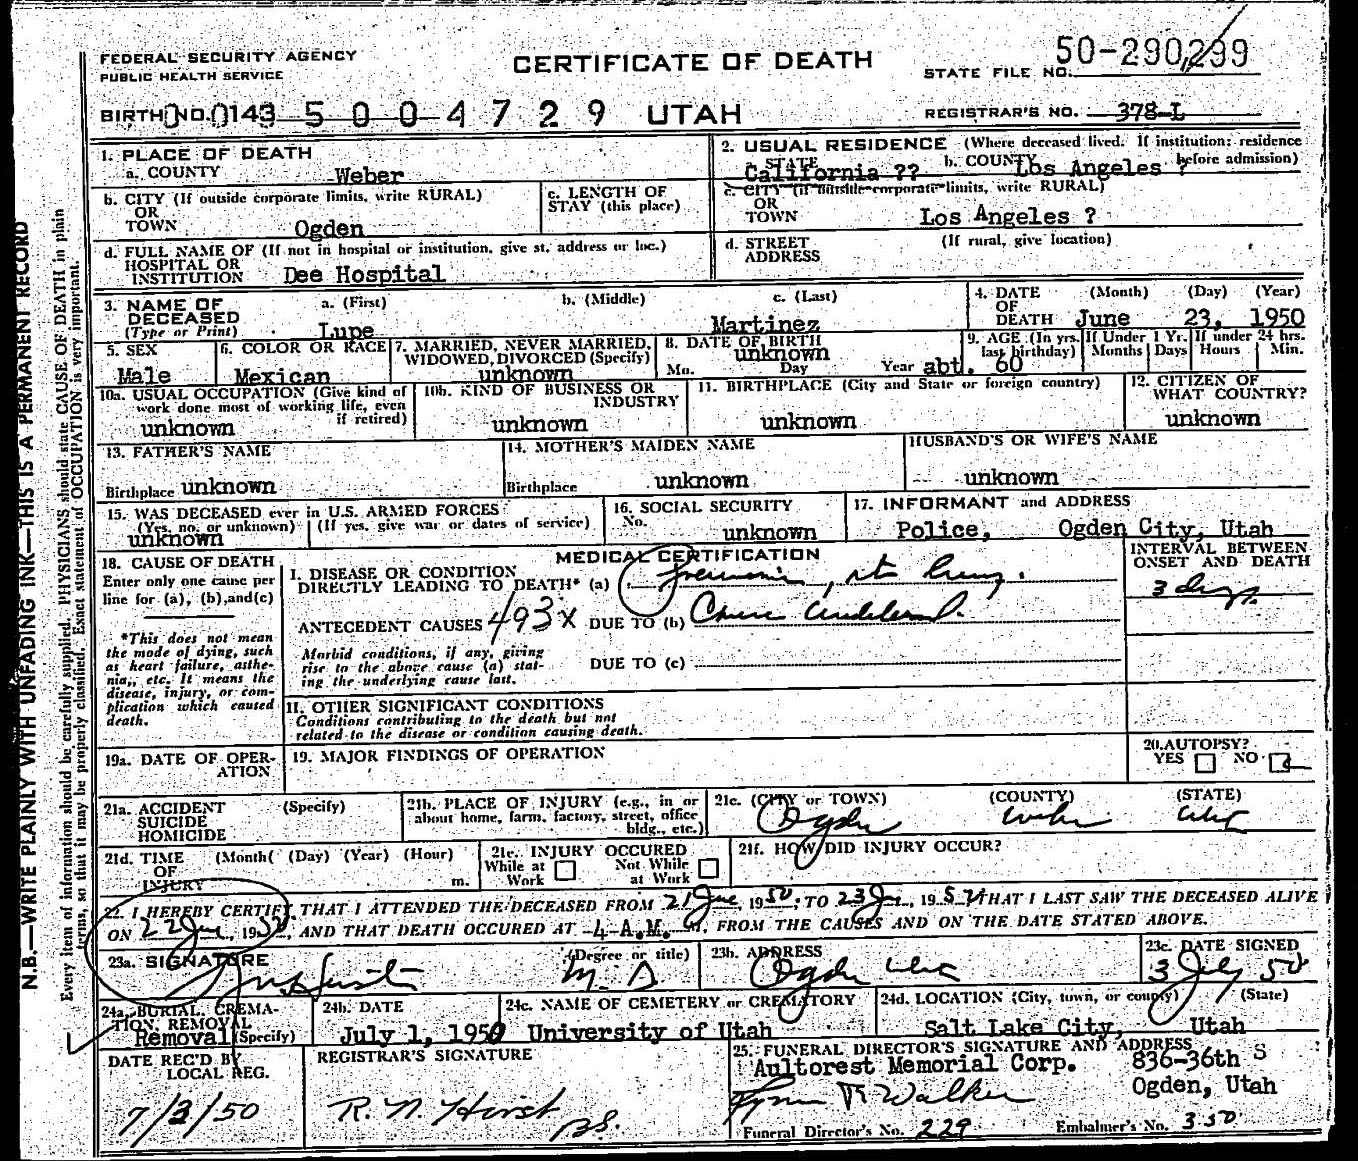 FEDERAL SECURITY AGENCY
PUBLIC HEALTH SERVICE
CERTIFICATE OF DEATH
STATE FILE NO. 50-290,299
BIRTH NO. 0143 5004729 UTAH
REGISTRAR'S NO. 378-L
1. PLACE OF DEATH
a. COUNTY Weber
2. USUAL RESIDENCE (Where deceased lived. If institution: residence before admission)
a. STATE California ?? b. COUNTY Los Angeles ?
b. CITY (If outside corporate limits, write RURAL)
OR
TOWN Ogden
c. LENGTH OF
STAY (this place)
c. CITY (if outside corporate limits, write RURAL)
OR
TOWN Los Angeles ?
d. FULL NAME OF (If not in hospital or institution, give st. address or loc.)
HOSPITAL OR
INSTITUTION Dee Hospital
d. STREET (If rural, give location)
ADDRESS
3. NAME OF
DECEASED
(Type or Print)
a. (First) b. (Middle) c. (Last)
Lupe Martinez
4. DATE (Month) (Day) (Year)
OF
DEATH June 23, 1950
5. SEX
Male
6. COLOR OR RACE
Mexican
7. MARRIED, NEVER MARRIED,
WIDOWED, DIVORCED (Specify)
unknown
8. DATE OF BIRTH
unknown
Mo. Day Year
9. AGE (In yrs. last birthday)
abt. 60
If Under 1 Yr.
Months Days
If under 24 hrs.
Hours Min.
10a. USUAL OCCUPATION (Give kind of
work done most of working life, even
if retired)
unknown
10b. KIND OF BUSINESS OR
INDUSTRY
unknown
11. BIRTHPLACE (City and State or foreign country)
unknown
12. CITIZEN OF
WHAT COUNTRY?
unknown
13. FATHER'S NAME
Birthplace unknown
14. MOTHER'S MAIDEN NAME
Birthplace unknown
HUSBAND'S OR WIFE'S NAME
unknown
15. WAS DECEASED ever in U.S. ARMED FORCES
(Yes, no, or unknown) (If yes, give war or dates of service)
unknown
16. SOCIAL SECURITY
No. unknown
17. INFORMANT and ADDRESS
Police, Ogden City, Utah
18. CAUSE OF DEATH
Enter only one cause per
line for (a), (b), and (c)
*This does not mean
the mode of dying, such
as heart failure, asthe-
nia, etc. It means the
disease, injury, or com-
plication which caused
death.
MEDICAL CERTIFICATION
I. DISEASE OR CONDITION
DIRECTLY LEADING TO DEATH* (a) pneumonia, rt lung.
ANTECEDENT CAUSES 493X DUE TO (b)
Morbid conditions, if any, giving
rise to the above cause (a) stat-
ing the underlying cause last.
DUE TO (c)
INTERVAL BETWEEN
ONSET AND DEATH
3 days.
II. OTHER SIGNIFICANT CONDITIONS
Conditions contributing to the death but not
related to the disease or condition causing death.
19a. DATE OF OPER-
ATION
19. MAJOR FINDINGS OF OPERATION
20. AUTOPSY?
YES NO
21a. ACCIDENT (Specify)
SUICIDE
HOMICIDE
21b. PLACE OF INJURY (e.g., in or
about home, farm, factory, street, office
bldg., etc.)
21c. (CITY or TOWN) (COUNTY) (STATE)
Ogden Weber Utah
21d. TIME (Month) (Day) (Year) (Hour)
OF
INJURY m.
21e. INJURY OCCURED
While at Work
Not While at Work
21f. HOW DID INJURY OCCUR?
22. I HEREBY CERTIFY, THAT I ATTENDED THE DECEASED FROM 21 June 1950, TO 23 Ju., 1950 THAT I LAST SAW THE DECEASED ALIVE
ON 22 June, 1950, AND THAT DEATH OCCURED AT 4 A.M. m. FROM THE CAUSES AND ON THE DATE STATED ABOVE.
23a. SIGNATURE (Degree or title)
M. D
23b. ADDRESS
Ogden Utah
23c. DATE SIGNED
3 July 50
24a. BURIAL, CREMA-
TION, REMOVAL
Removal (Specify)
24b. DATE
July 1, 1950
24c. NAME OF CEMETERY or CREMATORY
University of Utah
24d. LOCATION (City, town, or county) (State)
Salt Lake City, Utah
DATE REC'D BY
LOCAL REG.
7/3/50
REGISTRAR'S SIGNATURE
R. N. Hirst
25. FUNERAL DIRECTOR'S SIGNATURE AND ADDRESS
Aultorest Memorial Corp. 836-36th S
Ogden, Utah
Lynn R Walker
Funeral Director's No. 229 Embalmer's No. 350
N.B.—WRITE PLAINLY WITH UNFADING INK—THIS IS A PERMANENT RECORD
Every item of information should be carefully supplied. PHYSICIANS should state CAUSE OF DEATH in plain
terms, so that it may be properly classified. Exact statement of OCCUPATION is very important.